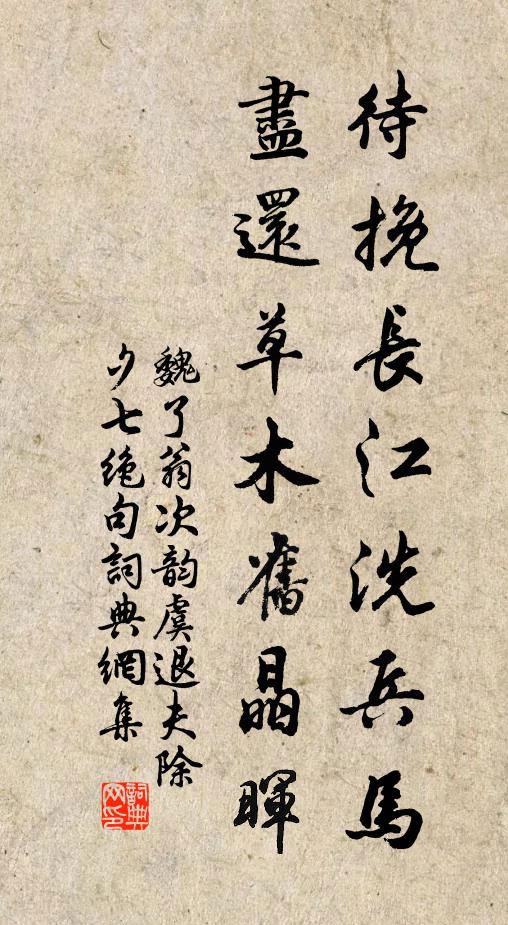 待挽長江洗兵馬
盡還草木舊晶暉
魏了翁次韵虞退夫除
夕七绝句詞典網集
詞典
网印